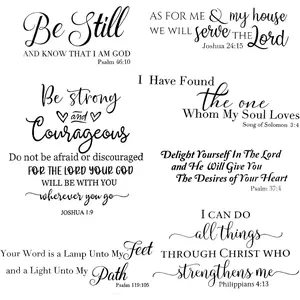 Be Still
AND KNOW THAT I AM GOD
Psalm 46:10
AS FOR ME & my house
WE WILL serve THE Lord
Joshua 24:15
I Have Found
the one
Whom My Soul Loves
Song of Solomon 3:4
Be strong
and
Courageous
Do not be afraid or discouraged
FOR THE LORD YOUR GOD
WILL BE WITH YOU
wherever you go
JOSHUA 1:9
Delight Yourself In The Lord
and He Will Give You
The Desires of Your Heart
Psalm 37:4
Your Word is a Lamp Unto My Feet
and a Light Unto My Path
Psalm 119:105
I CAN DO
all things
THROUGH CHRIST WHO
strengthens me
Philippians 4:13